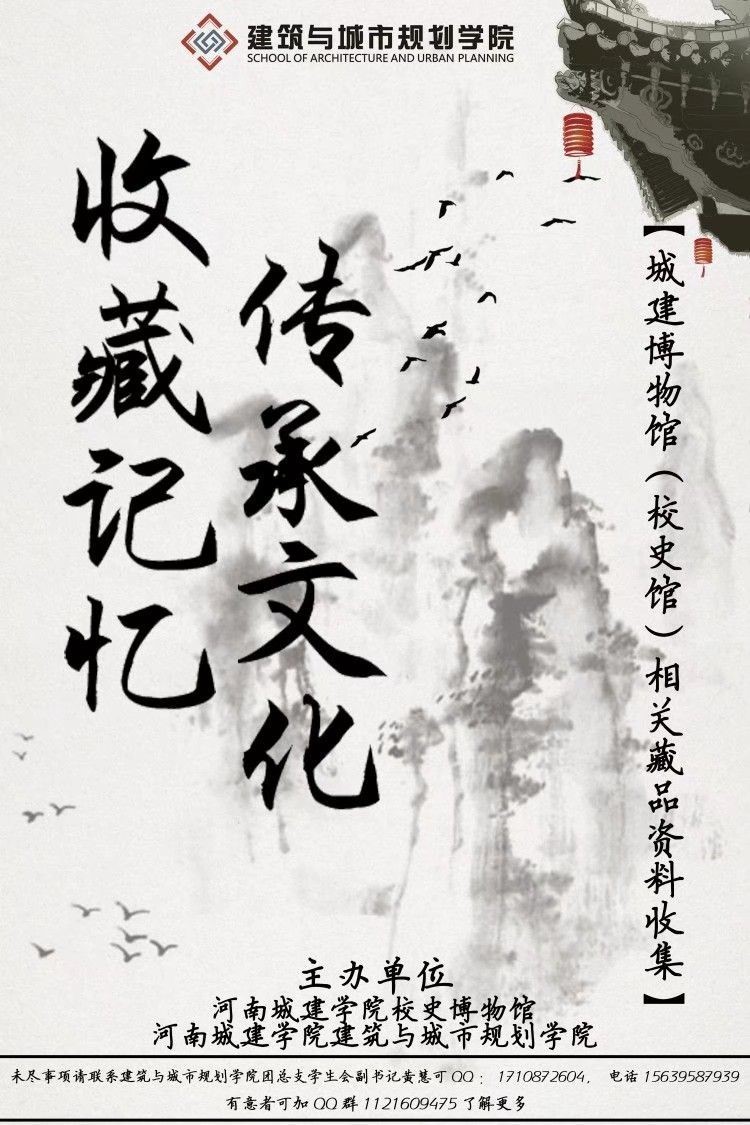 建筑与城市规划学院
SCHOOL OF ARCHITECTURE AND URBAN PLANNING
收藏记忆
传承文化
【城建博物馆（校史馆）相关藏品资料收集】
主办单位
河南城建学院校史博物馆
河南城建学院建筑与城市规划学院
未尽事项请联系建筑与城市规划学院团总支学生会副书记黄慧可QQ：1710872604， 电话15639587939
有意者可加QQ群1121609475了解更多